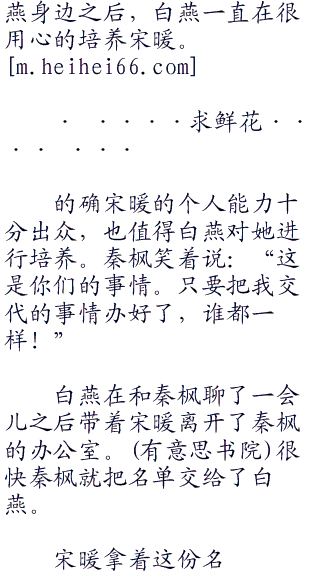 燕身边之后，白燕一直在很
用心的培养宋暖。
[m.heihei66.com]
· ·····求鲜花··
·· ···
的确宋暖的个人能力十
分出众，也值得白燕对她进
行培养。秦枫笑着说：“这
是你们的事情。只要把我交
代的事情办好了，谁都一
样！”
白燕在和秦枫聊了一会
儿之后带着宋暖离开了秦枫
的办公室。(有意思书院)很
快秦枫就把名单交给了白
燕。
宋暖拿着这份名